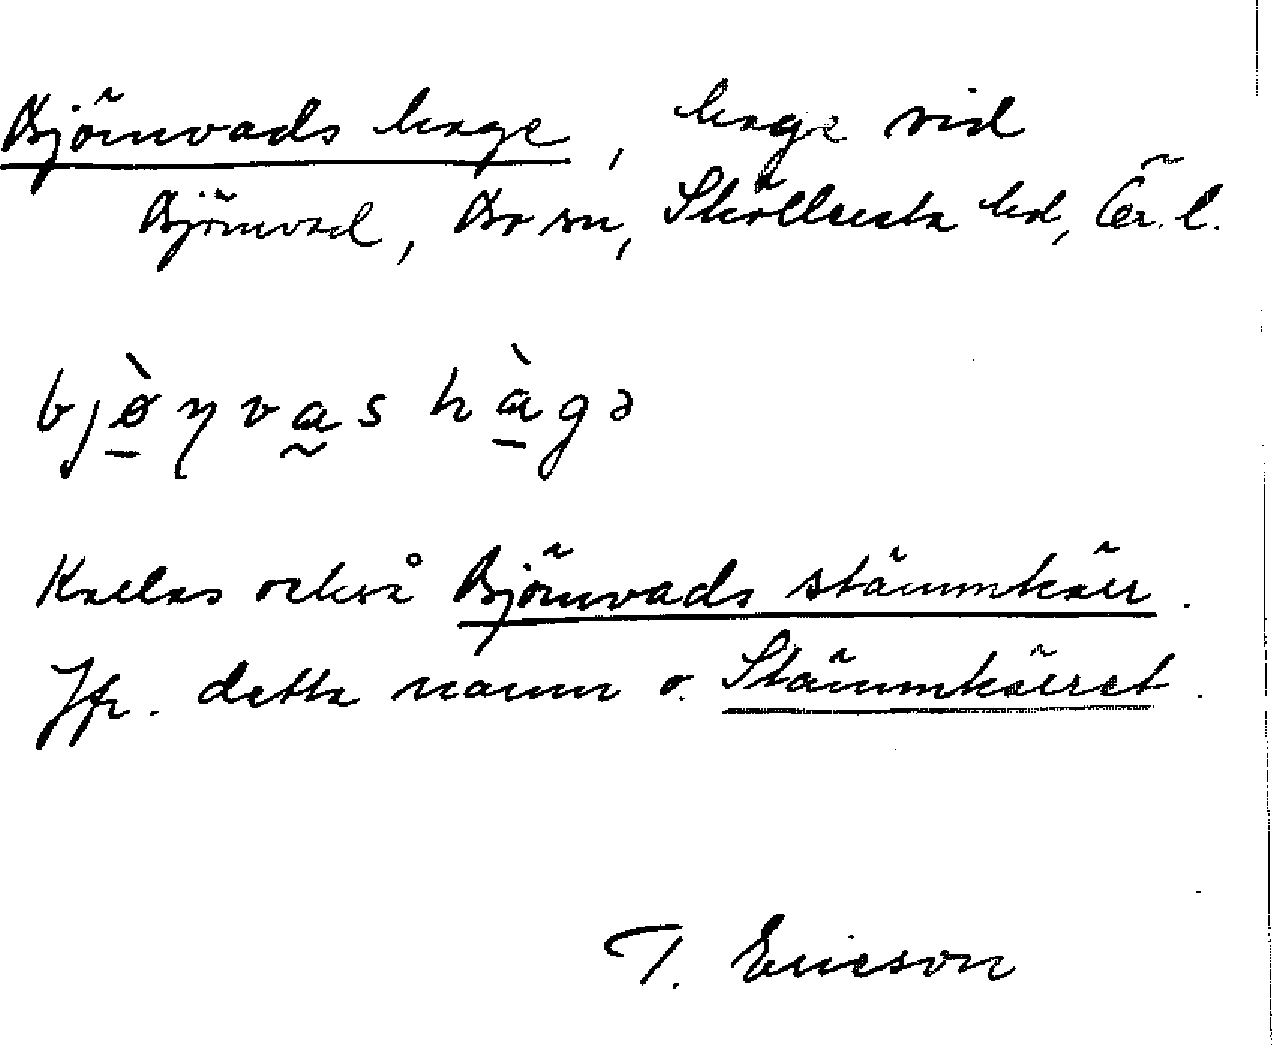 Björnvads hage, hage vid
Björnvad, Bo sn, Sköllersta hd, Ör. l.
bjø̱̀ŋva̰s hà̱gə
Kallas också Björnvads stämmkärr.
Jfr. detta namn o. Stämmkärret.
T. Ericson